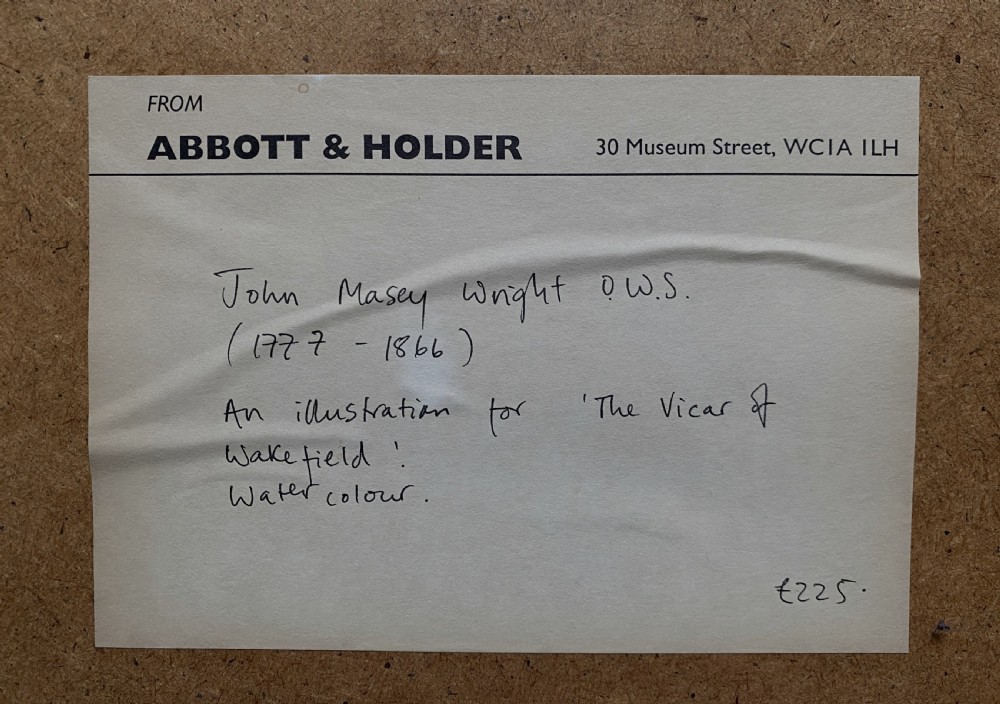 FROM
ABBOTT & HOLDER 30 Museum Street, WC1A 1LH
John Masey Wright O.W.S.
(1777 - 1866)
An illustration for 'The Vicar of
Wakefield'.
Watercolour.
£225.